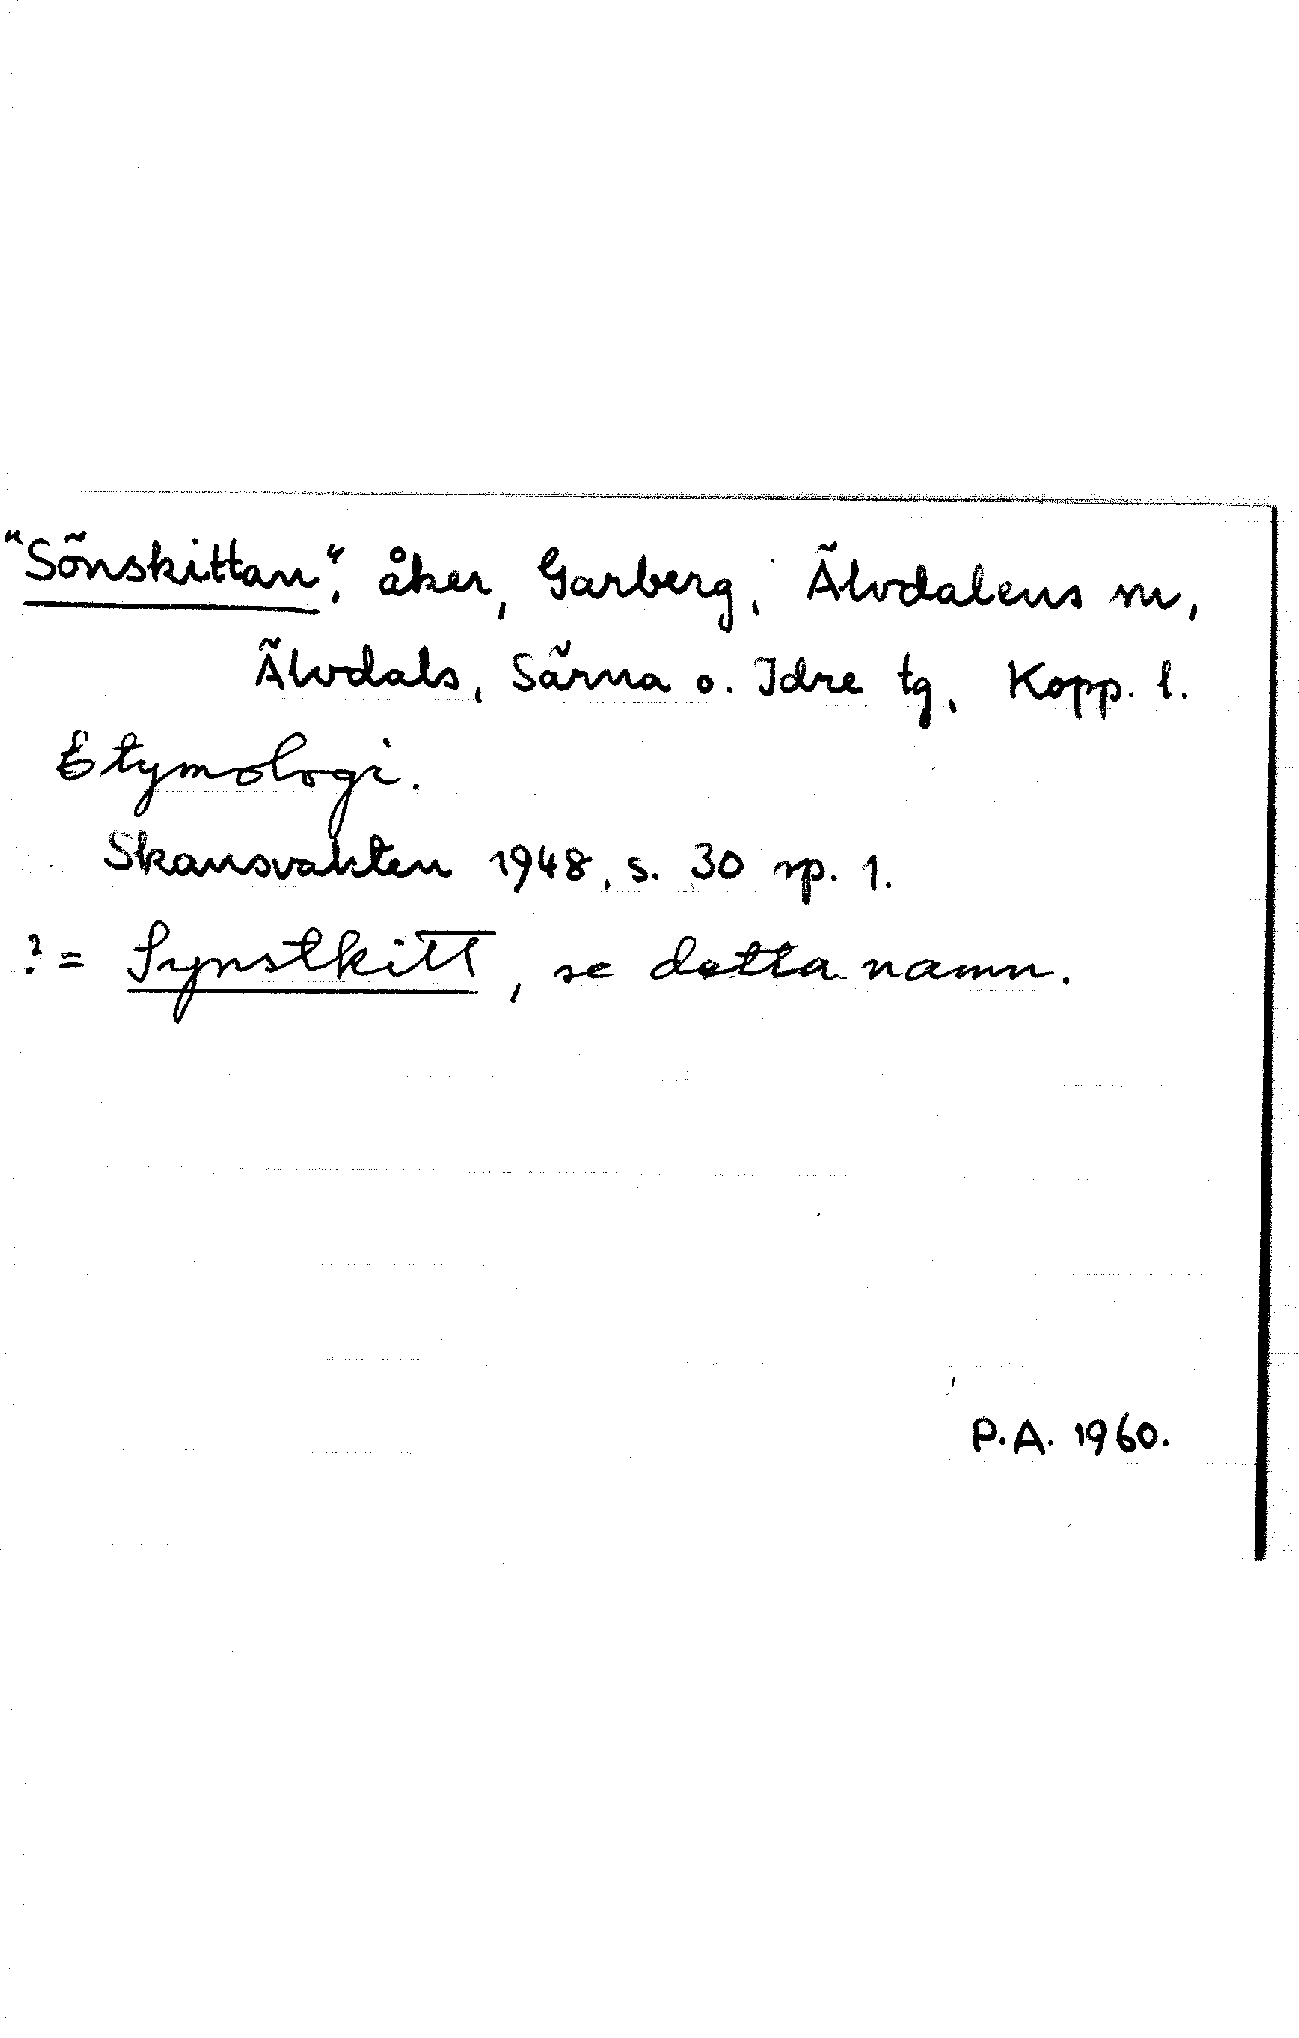 "Sönskittan", åker, Garberg, Älvdalens sn,
Älvdals, Särna o. Idre tg, Kopp. l.
Etymologi.
Skansvakten 1948, s. 30 sp. 1.
? = Synstkitt, se detta namn.
P.A. 1960.